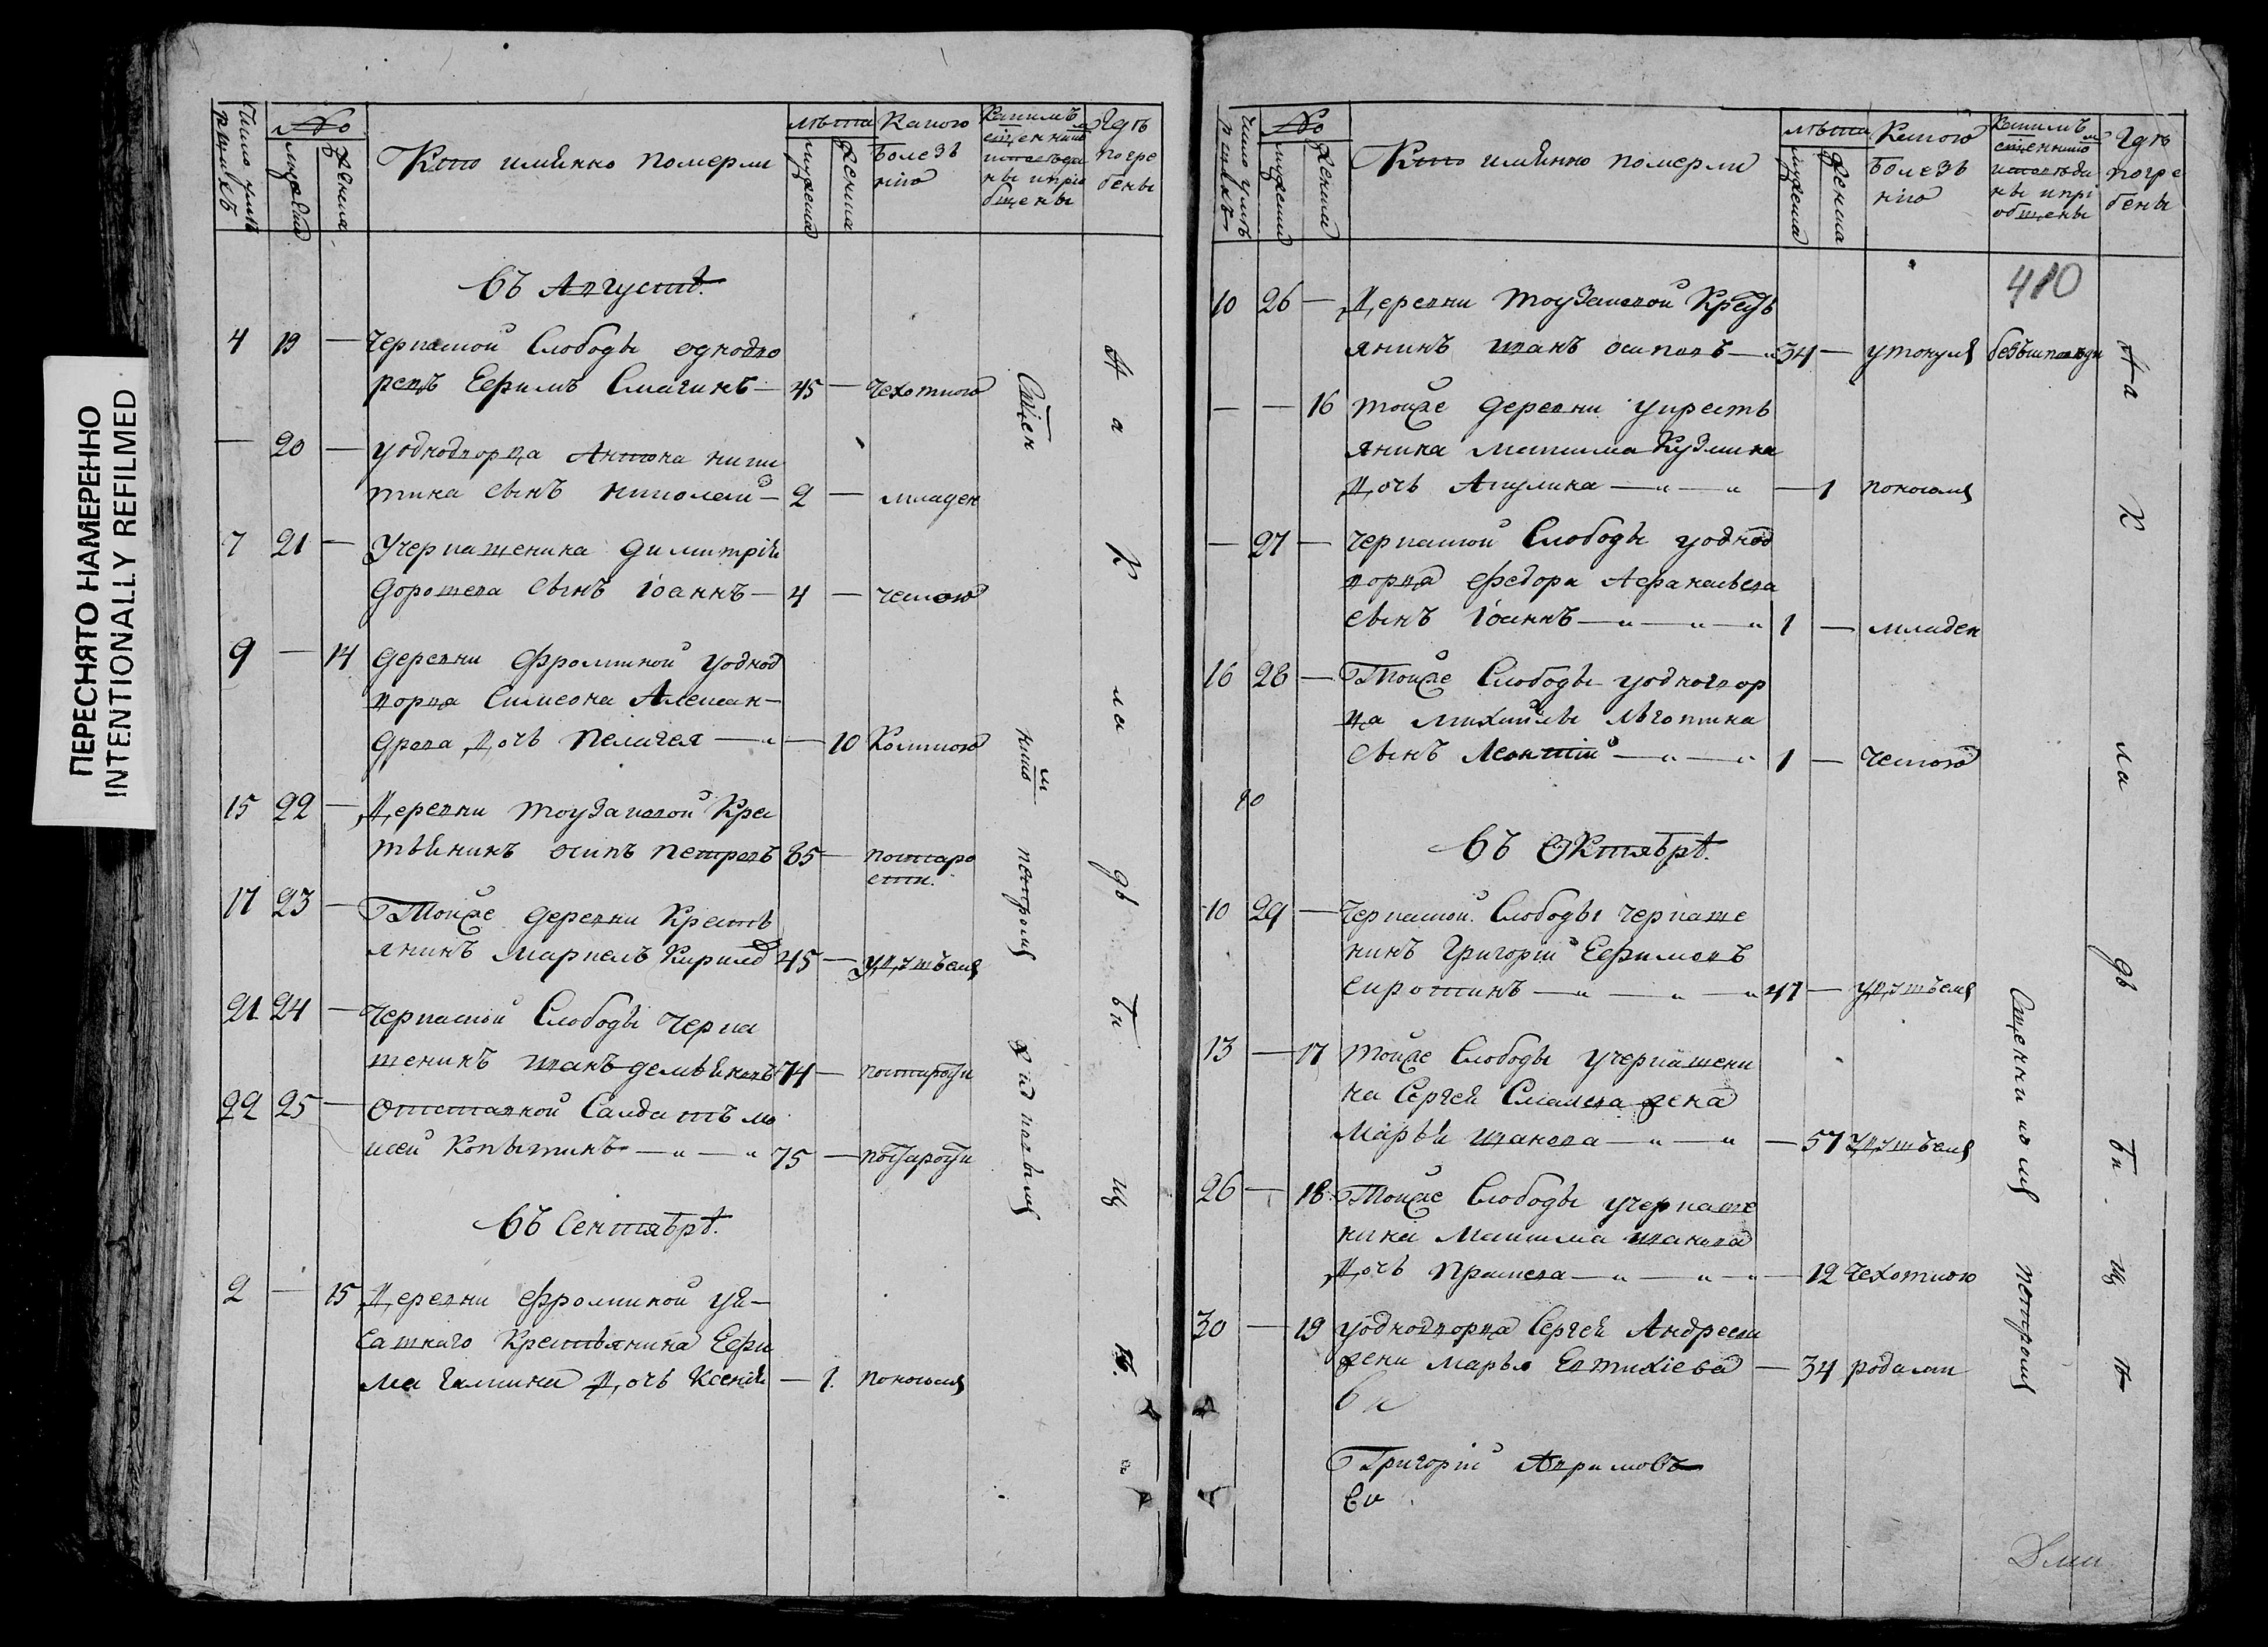 ПЕРЕСНЯТО НАМЕРЕННО
INTENTIONALLY REFILMED
Число умер
шихъ
№
мужеска
женска
Кто имянно померли
лѣта
мужеска
женска
Какою
болезъ
нію
Какимъ
сщенником
исповѣда
ны и прїо
бщены
Гдѣ
погре
бены
въ Августѣ.
4 19 — Черкаской Слободы однодво
рецъ Ефимъ Смагинъ — 45 — чехоткою
— 20 — уоднодворца Антона ники
тина сынъ николай — 2 — младен
7 21 — Учеркашенина димитрїя
дорофеева сынъ іоаннъ — 4 — чемою
9 — 14 деревни Фроликой уоднод
ворца Симеона Алексан-
дрова дочь Пелагея — — 10 Коликою
15 22 — Деревни Тоузаковой Крес
тьянинъ осипъ Петровъ 85 — постаро
сти.
17 23 — Тойже деревни Кресть
янинъ Маркелъ Кирилов 45 — удушьемъ
21 24 — Черкаской Слободы Черка
шенинъ иванъ демьяновъ 74 — постарости
22 25 — Отставной Салдатъ мо
исей Копытинъ — „ — „ 75 — постарости
въ Сентябрѣ.
2 — 15 Деревни Фроликой уя-
сашнаго Крестьянина Ефи
ма Галкина Дочь Ксенїя — 1. поносомъ
Сщен
ником
петромъ
Давыдовымъ
На
К
ла
дь
би
щ
ѣ.
Число умер
шихъ
№
мужеска
женска
Кто имянно померли
лѣта
мужеска
женска
Какою
болезъ
нію
Какимъ
сщенником
исповѣда
ны и прі
общены
Гдѣ
погре
бены
410
10 26 — Деревни Тоузаковой Кресть
янинъ иванъ осиповъ — „ 34 — утонулъ безъисповѣди
— — 16 тойже деревни укресть
янина максима Кузмина
Дочь Акулина — „ — „ — 1 поносомъ
— 27 — Черкаской Слободы уоднод
ворца федора Афанасьева
сынъ іоаннъ — „ — „ — „ 1 — младен
16 28 — Тойже Слободы уоднодвор
ца михайлы лѣготина
сынъ Леонтій — „ — „ 1 — чемою
въ Октябрѣ.
10 29 — Черкаской Слободы черкаше
нинъ Григорій Ефимовъ
Сиротинъ — „ — „ — „ 47 — удушьемъ
13 — 17 тойже Слободы учеркашени
на Сергея Смакова жена
Марья иванова — „ — „ — 57 удушьемъ
26 — 18 Тойже Слободы учеркаше
нина максима иванова
Дочь Праскева — „ — „ — „ — 12 чехоткою
30 — 19 уоднодворца Сергея Андреева
жена марья Евтихіева — 34 родами
Григорій
На
К
ла
дь
би
щ
ѣ
Сщенникомъ
петромъ